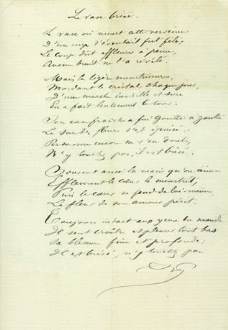 Le vase brisé
Le vase où meurt cette verveine
D'un coup d'éventail fut fêlé;
Le coup dut effleurer à peine,
Aucun bruit ne l'a révélé.
Mais la légère meurtrissure,
Mordant le cristal chaque jour,
D'une marche invisible et sûre
En a fait lentement le tour.
Son eau fraîche a fui goutte à goutte
Le suc des fleurs s'est épuisé;
Personne encor ne s'en doute,
N'y touchez pas, il est brisé.
Souvent aussi la main qu'on aime
Effleurant le cœur le meurtrit;
Puis le cœur se fend de lui-même,
La fleur de son amour périt.
Toujours intact aux yeux du monde
Il sent croître et pleurer tout bas
Sa blessure fine et profonde;
Il est brisé, n'y touchez pas